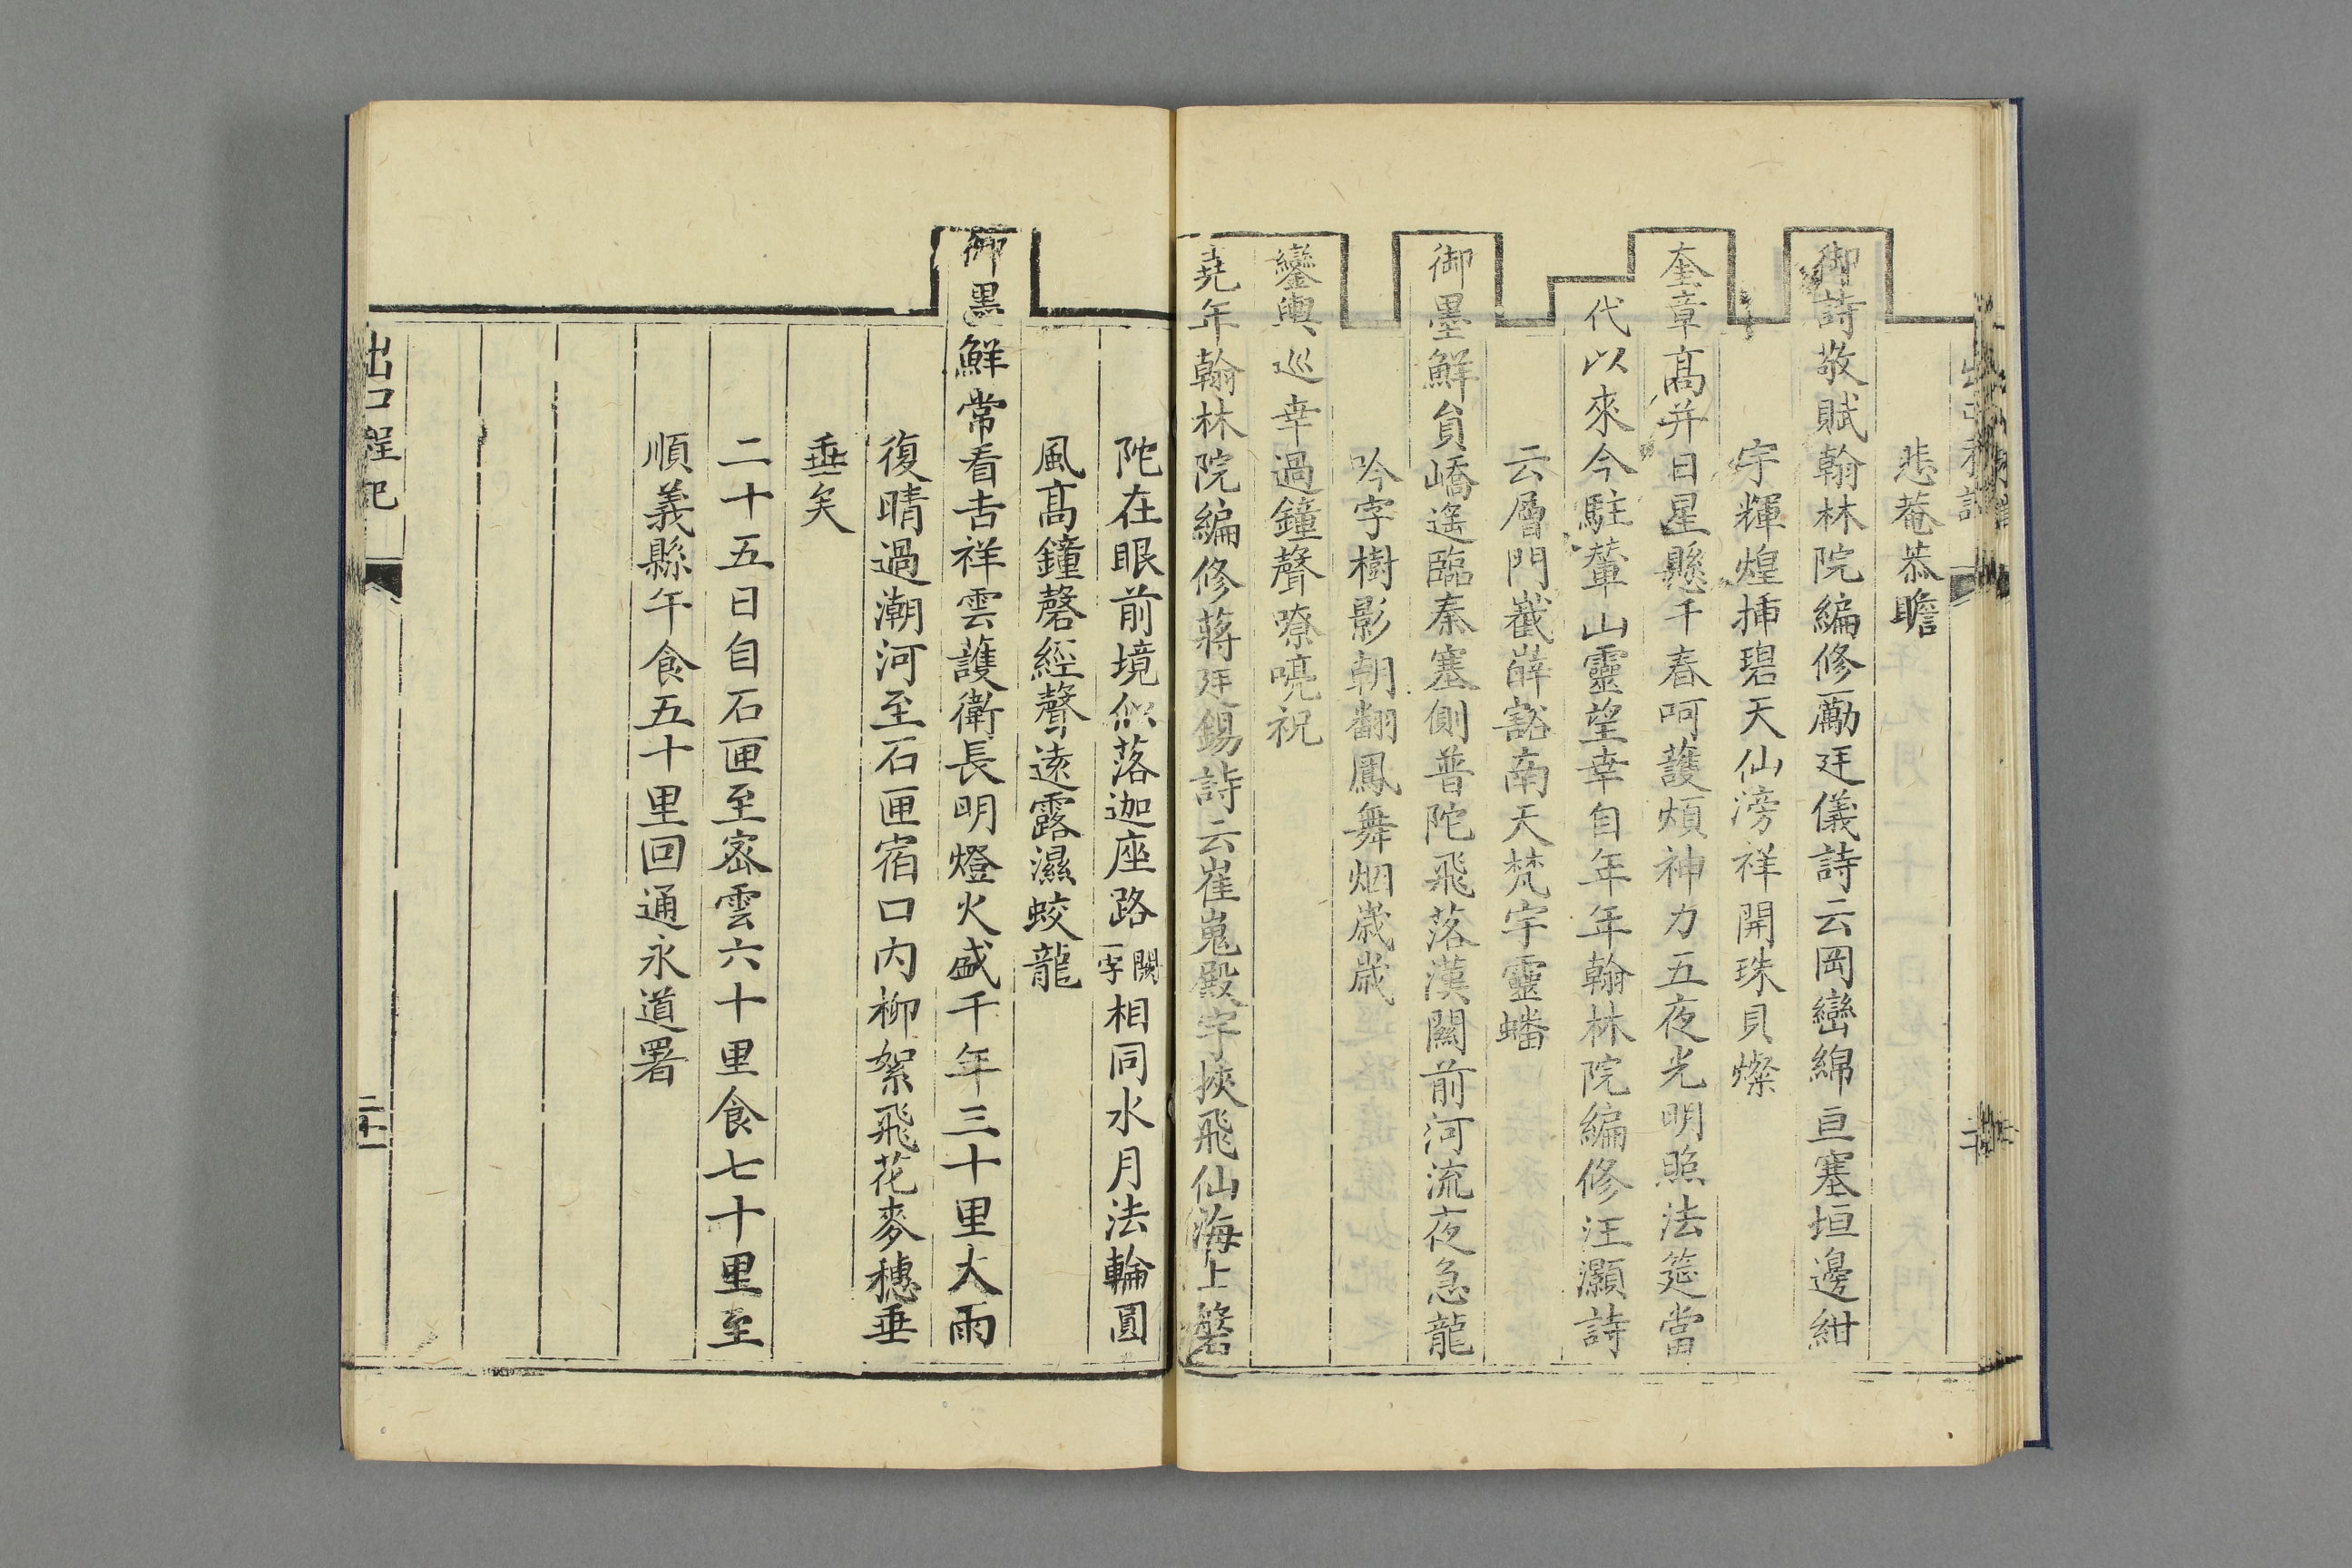 悲菴恭瞻
御詩敬賦翰林院編修勵廷儀詩云岡巒綿亘塞垣邊紺
宇輝煌揷碧天仙滂祥開珠貝燦
奎章髙并日星懸千春呵護煩神力五夜光明照法筵當
代以來今駐輦山靈望幸自年年翰林院編修汪灝詩
云層門嶻嶭豁南天梵宇靈蟠
御墨鮮貟嶠遙臨秦塞側普陀飛落漢關前河流夜急龍
吟字樹影朝翻鳳舞烟歲歲
鑾輿巡幸過鐘聲嘹喨祝
堯年翰林院編修蔣廷錫詩云崔嵬殿宇挾飛仙海上磐
陀在眼前境似落迦座路闕一字相同水月法輪圓
風髙鐘磬經聲遠露濕蛟龍
御墨鮮常看吉祥雲護衛長明燈火盛千年三十里大雨
復晴過潮河至石匣宿口内柳絮飛花麥穗垂
垂矣
二十五日自石匣至宻雲六十里食七十里至
順義縣午食五十里回通永道署
出口程記
二十一